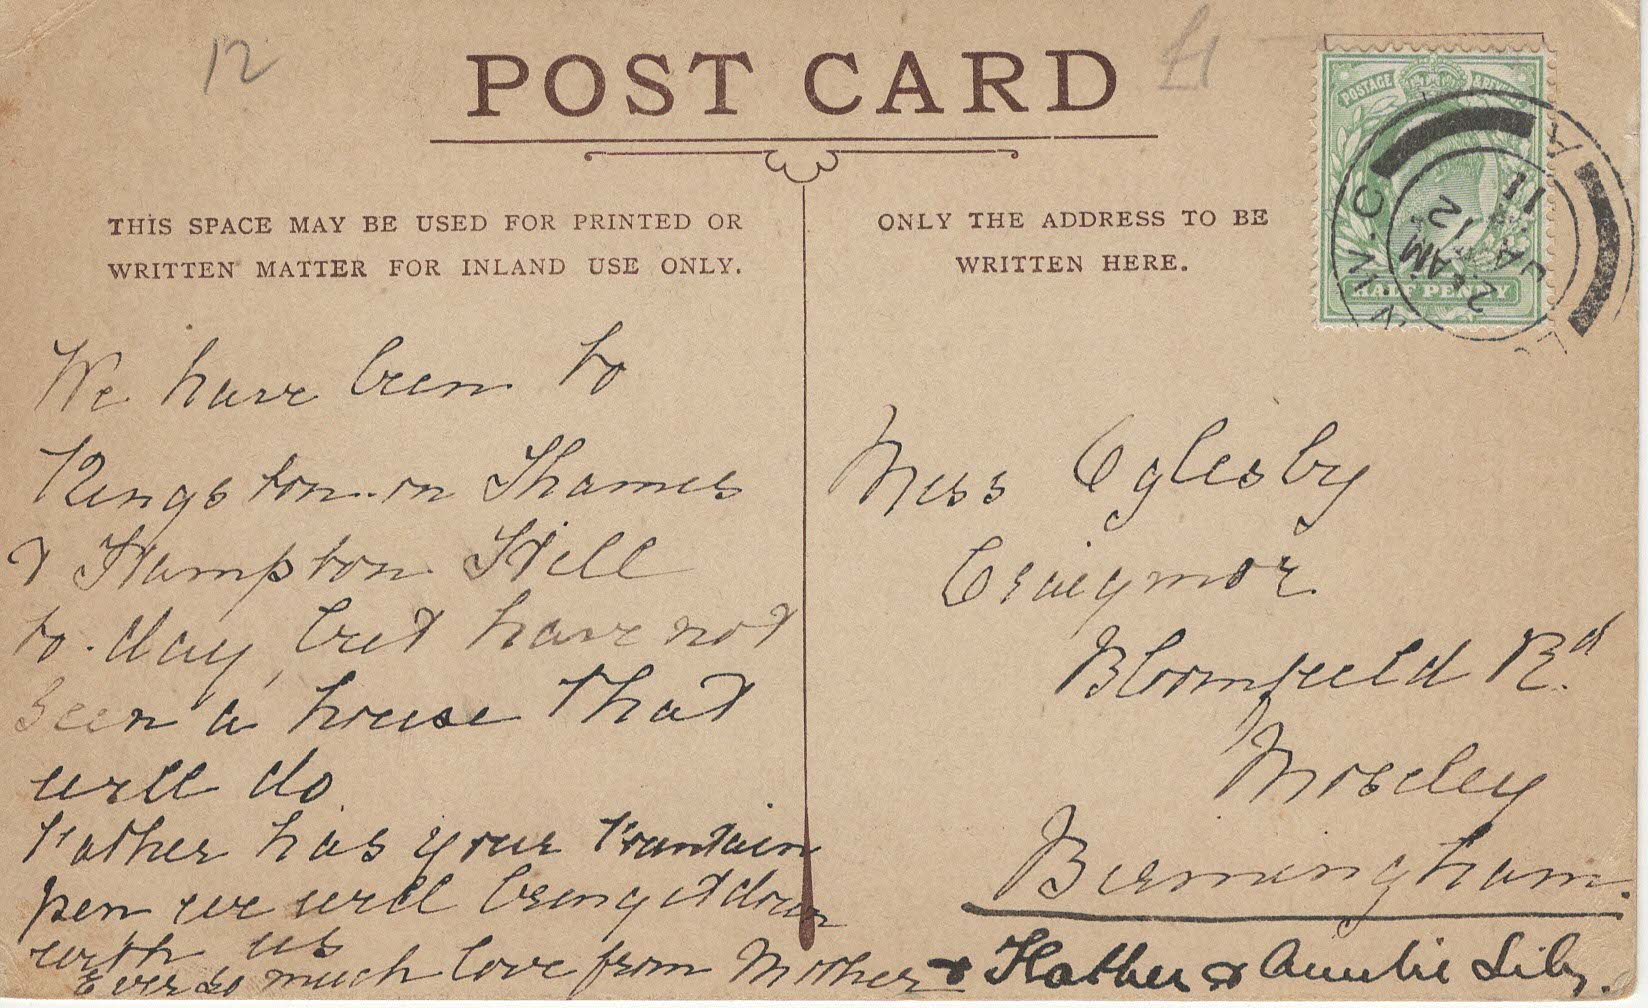 12
POST CARD
£1
POSTAGE & REVENUE
HALF PENNY
W.C.
A
2 AM
JA 12
11
THIS SPACE MAY BE USED FOR PRINTED OR
WRITTEN MATTER FOR INLAND USE ONLY.
We have been to
Kingston-on Thames
& Hampton Hill
to-day, but have not
seen a house that
will do
Father has your Fountain
pen we will bring it down
with us
Ever so much love from Mother & Father & Auntie Lily.
ONLY THE ADDRESS TO BE
WRITTEN HERE.
Miss Oglesby
Craigmor
Bloomfield Rd.
Moseley
Birmingham.